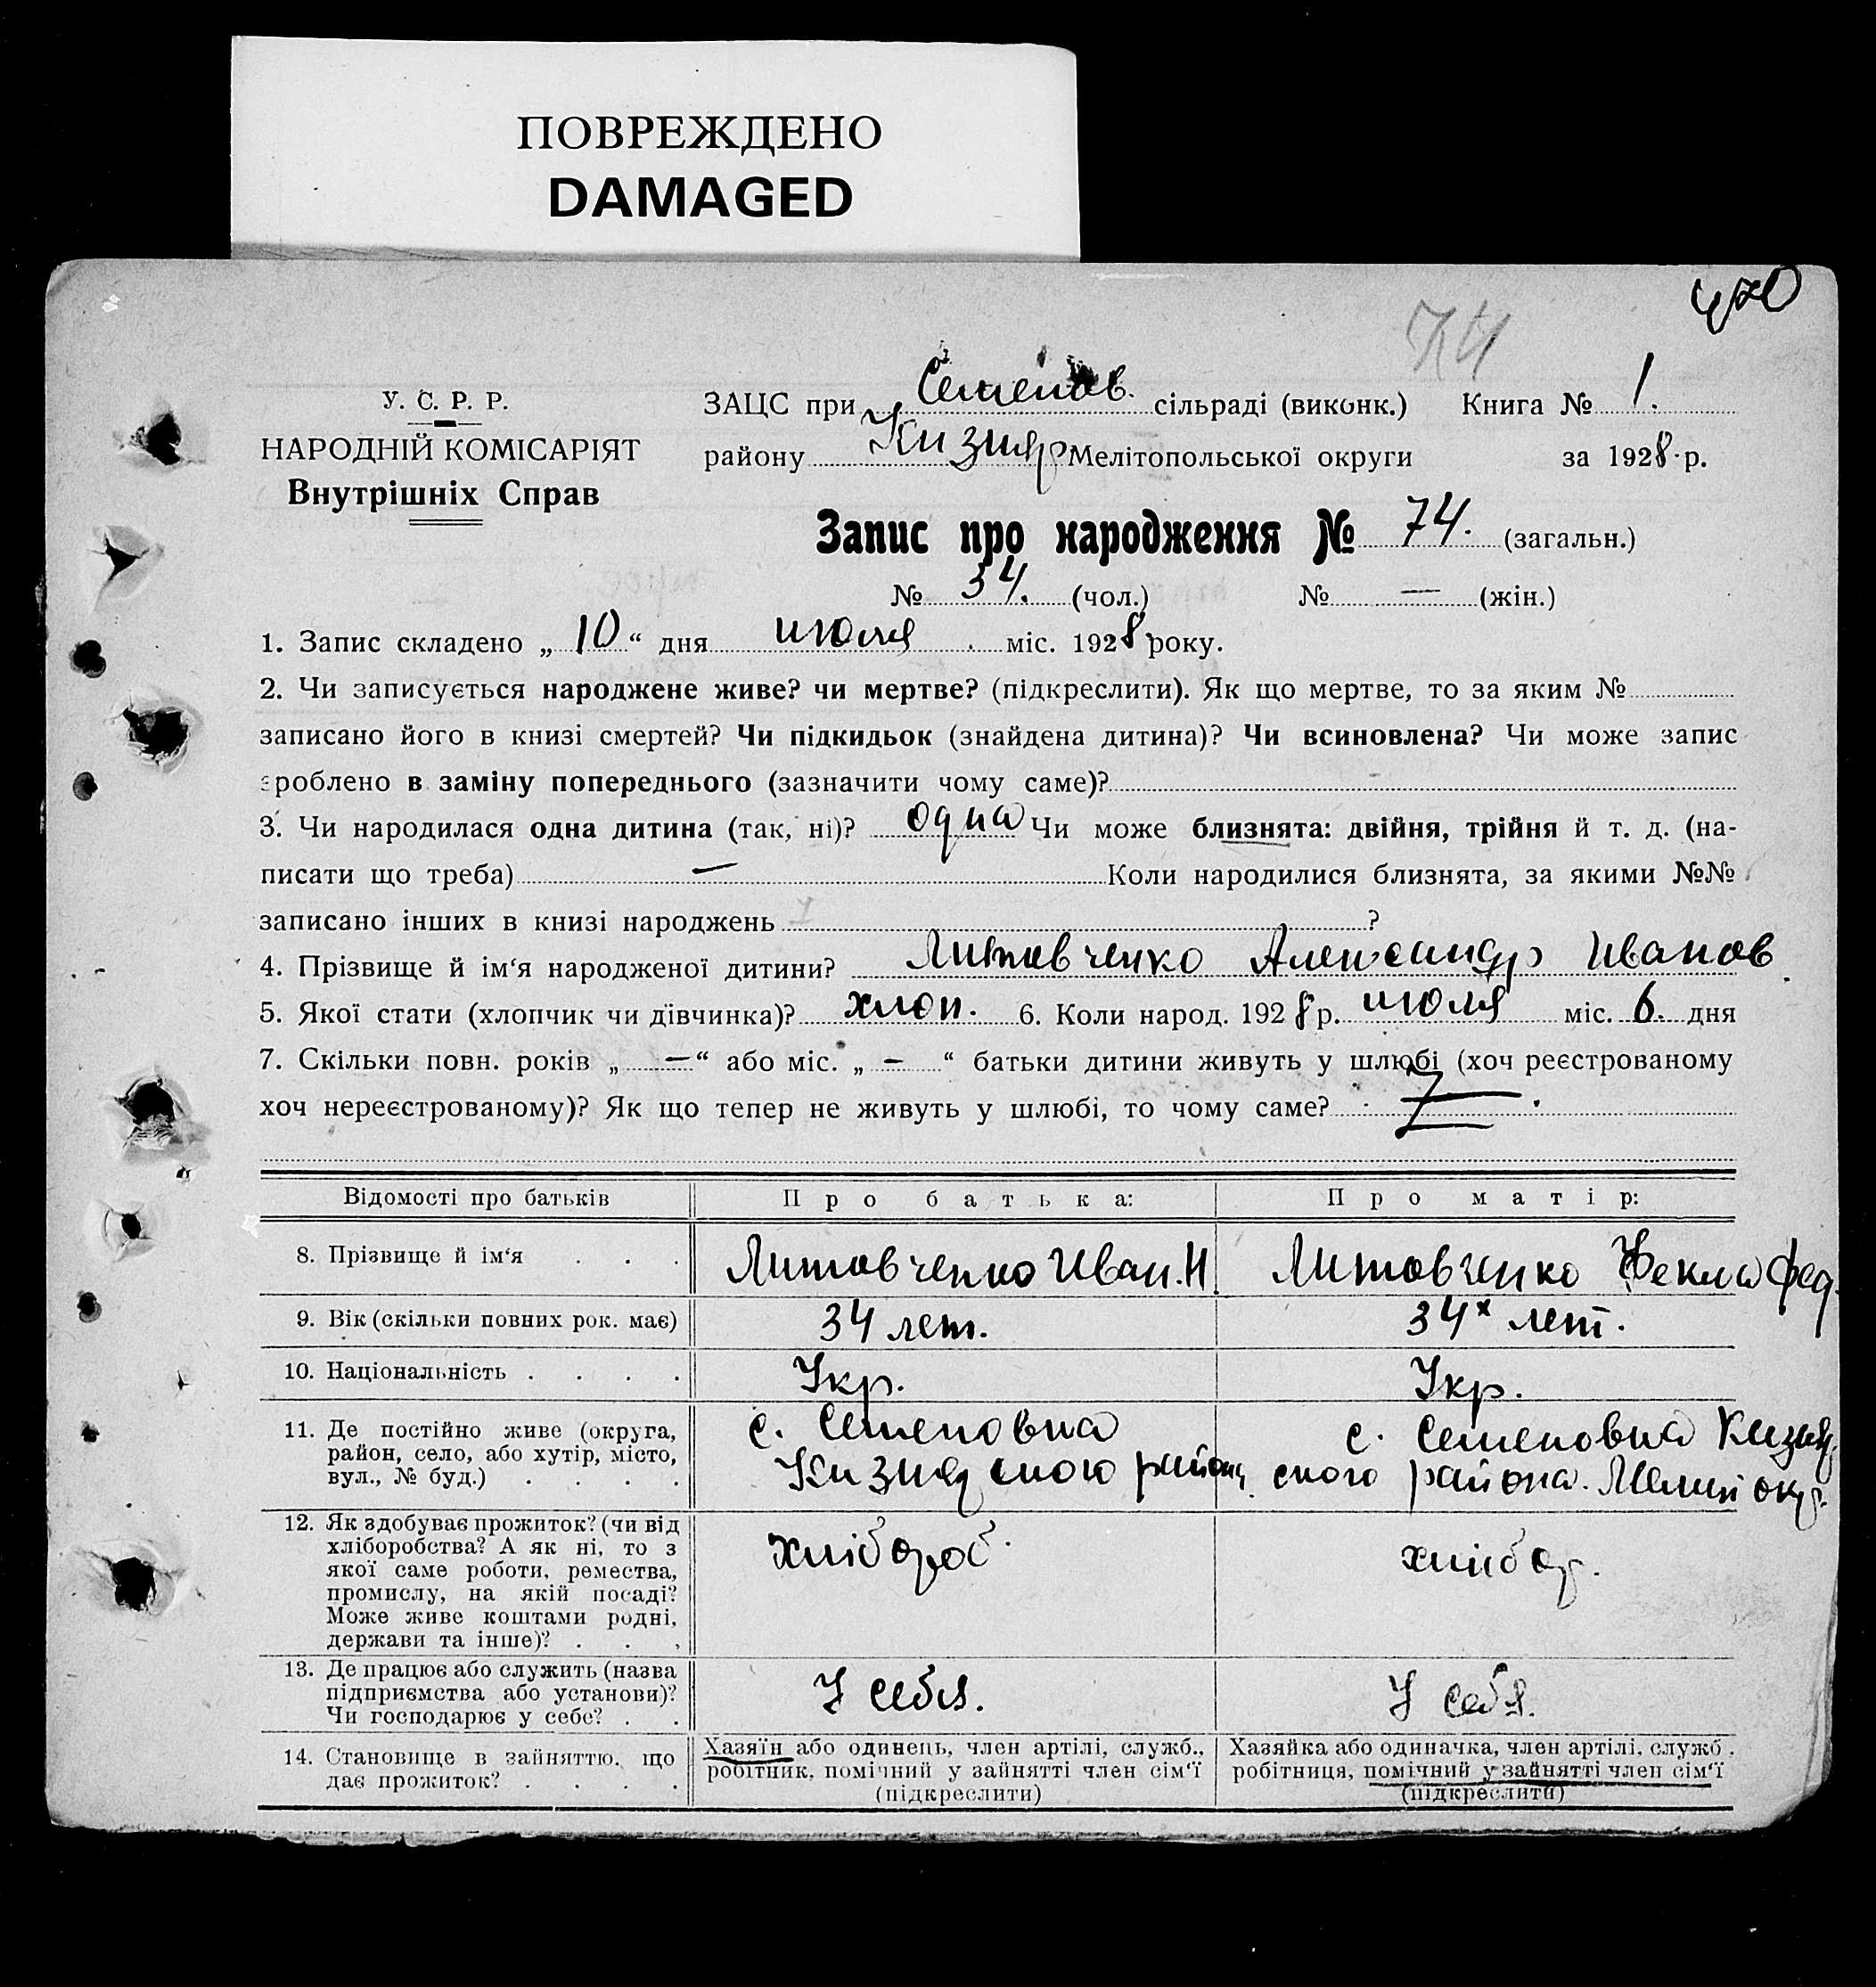 ПОВРЕЖДЕНО
DAMAGED
470
74
У. С. Р. Р.
НАРОДНІЙ КОМІСАРІЯТ
Внутрішніх Справ
ЗАЦС при Семенов. сільраді (виконк.) Книга № 1.
району Кизияр Мелітопольської округи за 1928 р.
Запис про народження № 74. (загальн.)
№ 34. (чол.) № — (жін.)
1. Запис складено „ 10 “ дня июля міс. 1928 року.
2. Чи записується народжене живе? чи мертве? (підкреслити). Як що мертве, то за яким №
записано його в книзі смертей? Чи підкидьок (знайдена дитина)? Чи всиновлена? Чи може запис
зроблено в заміну попереднього (зазначити чому саме)?
3. Чи народилася одна дитина (так, ні)? одна Чи може близнята: двійня, трійня й т. д. (на-
писати що треба) — Коли народилися близнята, за якими №№
записано інших в книзі народжень ?
4. Прізвище й ім‘я народженої дитини? Литовченко Александр Иванов
5. Якої стати (хлопчик чи дівчинка)? хлоп. 6. Коли народ. 1928 р. июля міс. 6. дня
7. Скільки повн. років „ — “ або міс. „ — “ батьки дитини живуть у шлюбі (хоч реєстрованому
хоч нереєстрованому)? Як що тепер не живуть у шлюбі, то чому саме?
Відомості про батьків
Про батька:
Про матір:
8. Прізвище й ім‘я . . .
Литовченко Иван. И
Литовченко Фекла Фед.
9. Вік (скільки повних рок. має)
34 лет.
34х лет.
10. Національність . . . .
Укр.
Укр.
11. Де постійно живе (округа,
район, село, або хутір, місто,
вул., № буд.) . . . .
с. Семеновка
Кизиярского района
с. Семеновка Кизияр
ского района. Мелит окр.
12. Як здобуває прожиток? (чи від
хліборобства? А як ні, то з
якої саме роботи, ремества,
промислу, на якій посаді?
Може живе коштами родні,
держави та інше)? . . .
хлібороб.
хлібор.
13. Де працює або служить (назва
підприємства або установи)?
Чи господарює у себе? . .
У себя.
У себя.
14. Становище в зайняттю, що
дає прожиток? . . . .
Хазяїн або одинець, член артілі, служб.,
робітник, помічний у зайнятті член сім‘ї
(підкреслити)
Хазяйка або одиначка, член артілі, служб.
робітниця, помічний у зайнятті член сім‘ї
(підкреслити)